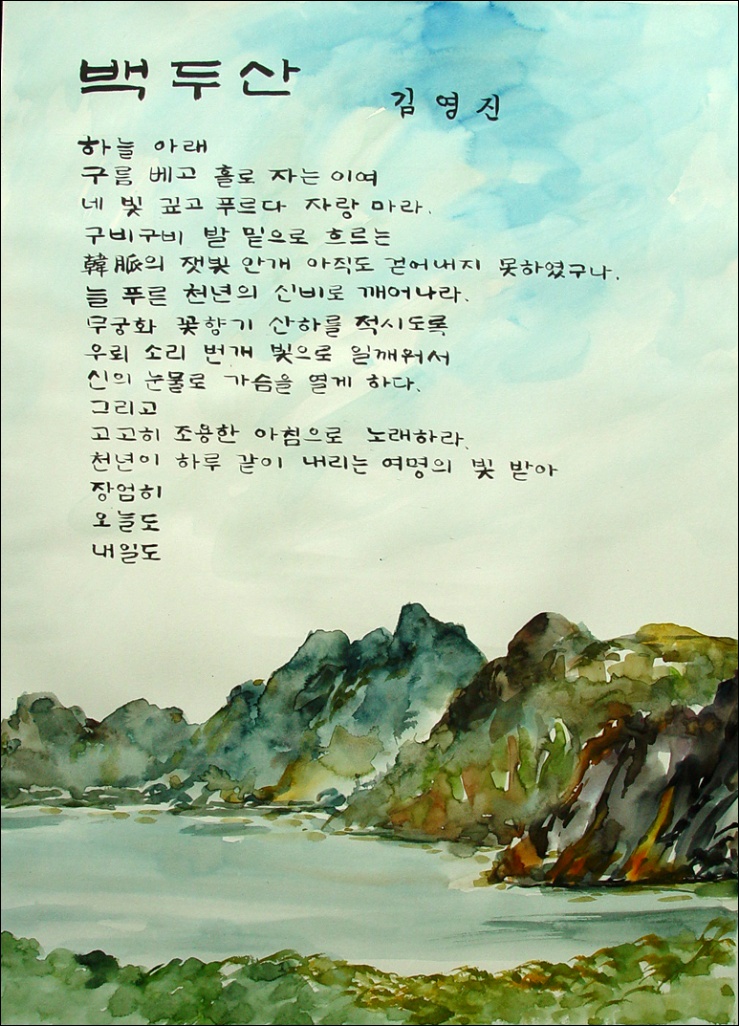 백두산
김영진
하늘 아래
구름 베고 홀로 자는 이여
네 빛 깊고 푸르다 자랑 마라.
구비구비 발 밑으로 흐르는
韓脈의 잿빛 안개 아직도 걷어내지 못하였구나.
늘 푸른 천년의 신비로 깨어나라.
무궁화 꽃향기 산하를 적시도록
우뢰 소리 번개 빛으로 일깨워서
신의 눈물로 가슴을 열게 하다.
그리고
고고히 조용한 아침으로 노래하라.
천년이 하루 같이 내리는 여명의 빛 받아
장엄히
오늘도
내일도